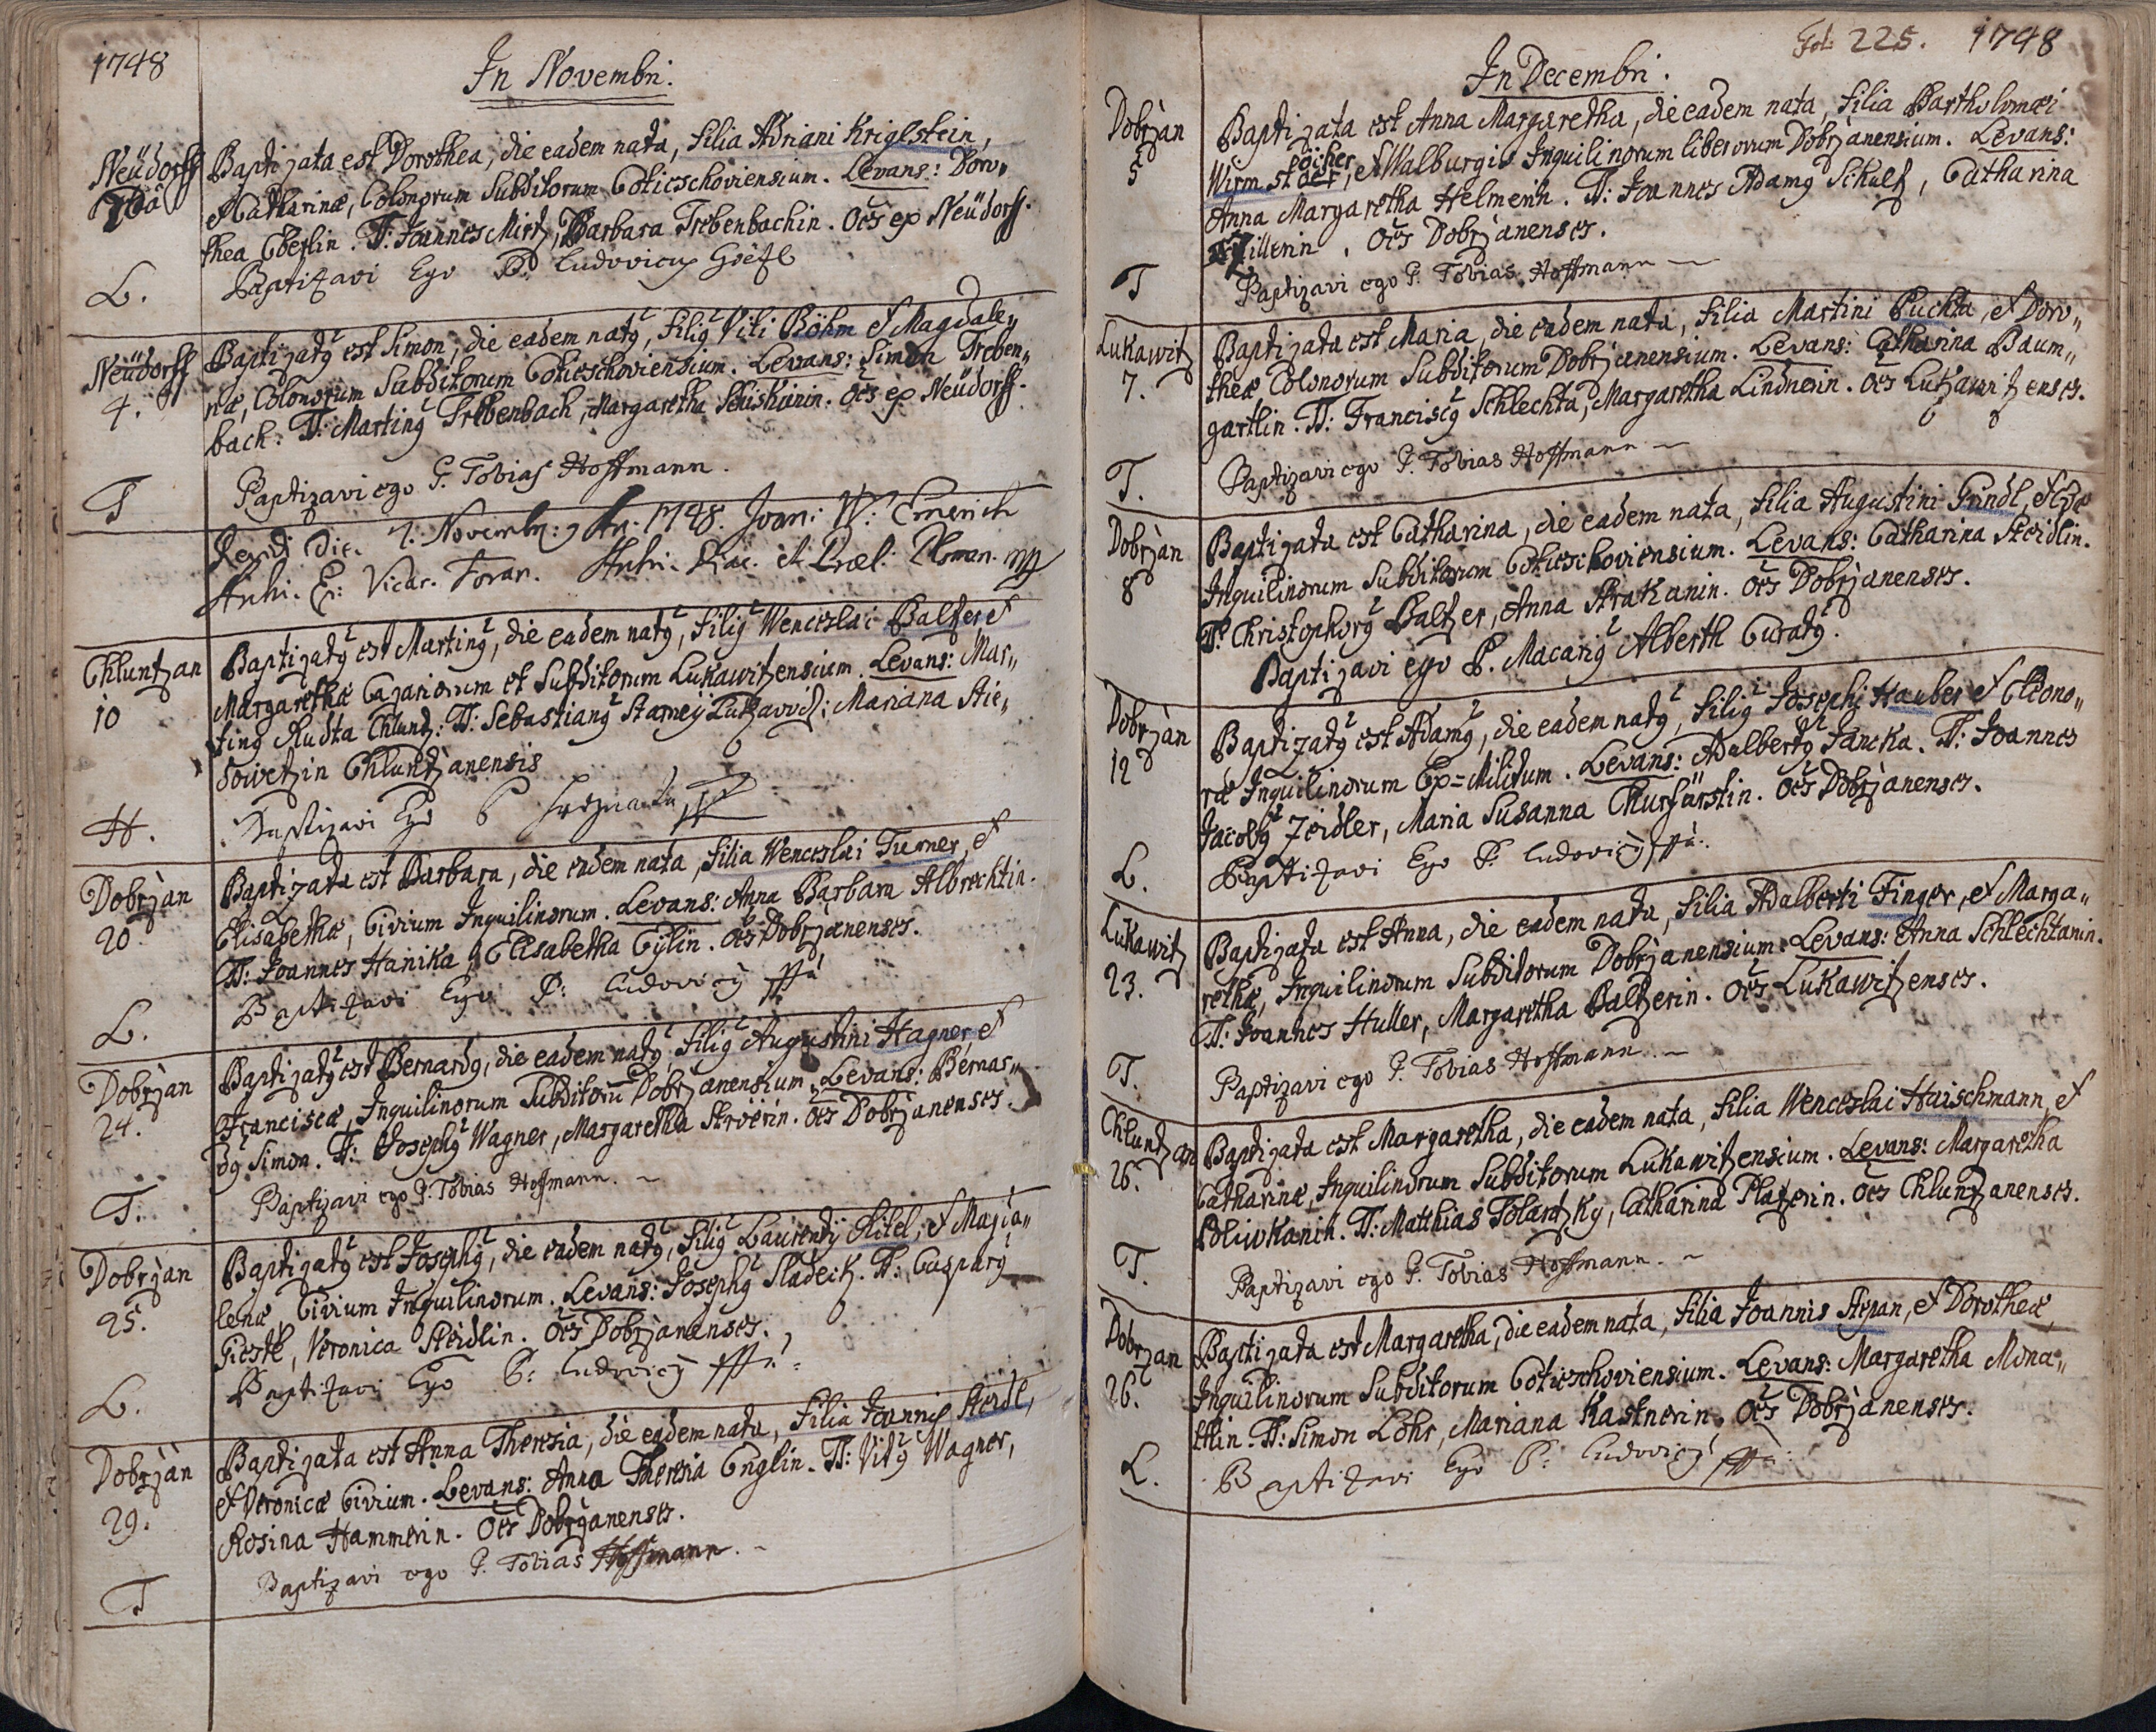 1748
In Novembri.
Neüdorff
Baptizata est Dorothea, die eadem nata, filia Adriani Kriglstein,
et Catharinæ, Colonorum Subditorum Cotieschoviensium. Levans: Doro„
thea Eberlin. T: Joannes Mirtz, Barbara Trebenbachin. Oēs ex Neüdorf.
L. Baptizavi Ego P. Ludovicus
Neüdorff
4.
Baptizatꝰ est Simon, die eadem natꝰ, filiꝰ Viti Böhm et Magdale„
næ, Colonorum Subditorum Cotieschoviensium. Levans: Simon Treben„
bach. T: Martinꝰ Trebenbach, Margaretha. Oēs ex Neüdorff.
T Baptizavi ego P. Tobias Hoffmann.
die 7. Novembr: 1748. Joan: W: Emerich
Vicar. Foran.
Chluntzan
10
Baptizatꝰ est Martinꝰ, die eadem natꝰ, filiꝰ Wenceslai Baltzer et
Margarethæ Cazariorum et Subditorum Lukawitzensium. Levans: Mar„
tinꝰ Rudta Chluntz: T: Sebastianꝰ; Mariana Stie„
Chluntzanensis
H. Baptizavi Ego P
Dobrzan
20.
Baptizata est Barbara, die eadem nata, filia Wenceslai Turner, et
Elisabethæ, Civium Inquilinorum. Levans: Anna Barbara Albrechtin.
T: Joannes Hanika, Elisabetha Eylin. Oēs Dobrzanenses.
L. Baptizavi Ego P: Ludovicꝰ
Dobrzan
24.
Baptizatꝰ est Bernardꝰ, die eadem natꝰ, filiꝰ Augustini Hagner, et
Franciscæ, Inquilinorum Subditorū Dobrzanensium. Levans: Bernar„
dꝰ Simon. T: Josephꝰ Wagner, Margaretha Ströerin. Oēs Dobrzanenses.
T. Baptizavi ego P. Tobias Hoffmann.
Dobrzan
25.
Baptizatꝰ est Josephꝰ, die eadem natꝰ, filiꝰ Laurentÿ Kitel, et Magda„
lenæ, Civium Inquilinorum. Levans: Josephꝰ Sladeck. T: Casparꝰ
Giestl, Veronica Steidlin. Oēs Dobrzanenses.
L. Baptizavi Ego P: Ludovicꝰ
Dobrzan
29.
Baptizata est Anna Theresia, die eadem nata, filia Joannis Steidl,
et Veronicæ Civium. Levans: Anna Theresia Englin. T: Vitꝰ Wagner,
Rosina Hammerin. Oēs Dobrzanenses.
T Baptizavi ego P. Tobias Hoffmann.
Fol: 225. 1748
In Decembri.
Dobrzan
5
Baptizata est Anna Margaretha, die eadem nata, filia Bartholomæi
Wirmstöcher, et Walburgis Inquilinorum liberorum Dobrzanensium. Levans:
Anna Margaretha Helmerin. T: Joannes Adamꝰ Schultz, Catharina
Zillerin. Oēs Dobrzanenses.
T Baptizavi ego P. Tobias Hoffmann
Lukawitz
7.
Baptizata est Maria, die eadem nata, filia Martini Puchta, et Doro„
theæ Colonorum Subditorum Dobrzanensium. Levans: Catharina Baum„
gartlin. T: Franciscꝰ Schlechta, Margaretha Lindnerin. Oēs Lukawitzenses.
T. Baptizavi ego P. Tobias Hoffmann
Dobrzan
8
Baptizata est Catharina, die eadem nata, filia Augustini Gründl, et Evæ
Inquilinorum Subditorum Cotieschoviensium. Levans: Catharina Steidlin.
T: Christophorꝰ Baltzer, Anna Strakanin. Oēs Dobrzanenses.
Baptizavi ego P. Macariꝰ Alberth Curatꝰ.
Dobrzan
12
Baptizatꝰ est Adamꝰ, die eadem natꝰ, filiꝰ Josephi Hauber et Eleono„
ræ Inquilinorum Ex=Militum. Levans: Adalbertꝰ Jancka. T: Joannes
Jacobꝰ Zeidler, Maria Susanna Churfürstin. Oēs Dobrzanenses.
L. Baptizavi Ego P: Ludovicꝰ
Lukawitz
23.
Baptizata est Anna, die eadem nata, filia Adalberti Finger, et Marga„
rethæ, Inquilinorum Subditorum Dobrzanensium. Levans: Anna Schlechtanin.
T: Joannes Huller, Margaretha Baltzerin. Oēs Lukawitzenses.
T. Baptizavi ego P. Tobias Hoffmann.
Chluntzan
26.
Baptizata est Margaretha, die eadem nata, filia Wenceslai Haischmann, et
Catharinæ, Inquilinorum Subditorum Lukawitzensium. Levans: Margaretha
Poliwkanin. T: Matthias Tolartzky, Catharina Platzerin. Oēs Chluntzanenses.
T. Baptizavi ego P. Tobias Hoffmann.
Dobrzan
26.
Baptizata est Margaretha, die eadem nata, filia Joannis Stepan, et Dorotheæ,
Inquilinorum Subditorum Cotieschoviensium. Levans: Margaretha Mona„
ttin. T: Simon Löhr, Mariana Kastnerin. Oēs Dobrzanenses.
L. Baptizavi Ego P: Ludovicꝰ